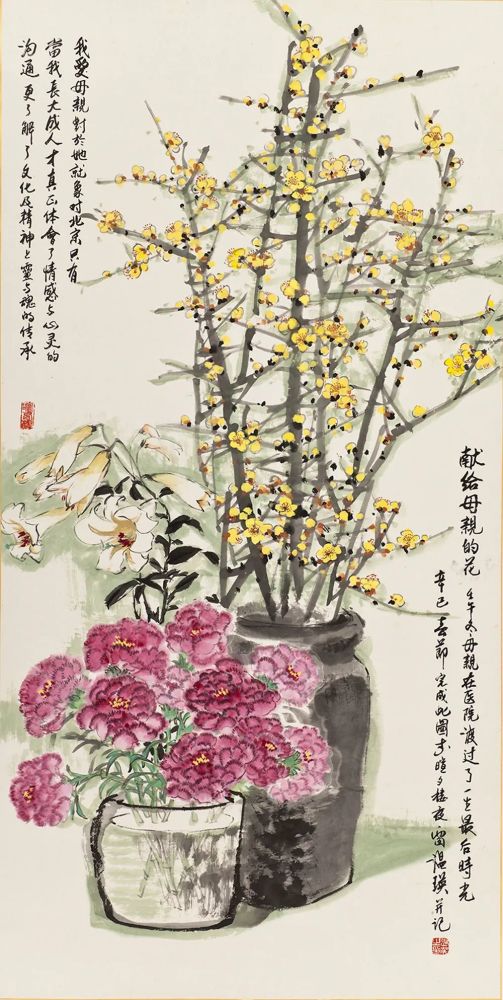 献给母親的花 壬午冬母親在医院渡过了一生最后時光
辛巳春節完成此圖於夕楼夜温瑛并记
我愛母親對於她就象对北京只有
當我長大成人才真正体會了情感与心灵的
沟通更了解了文化及精神之靈与魂的传承